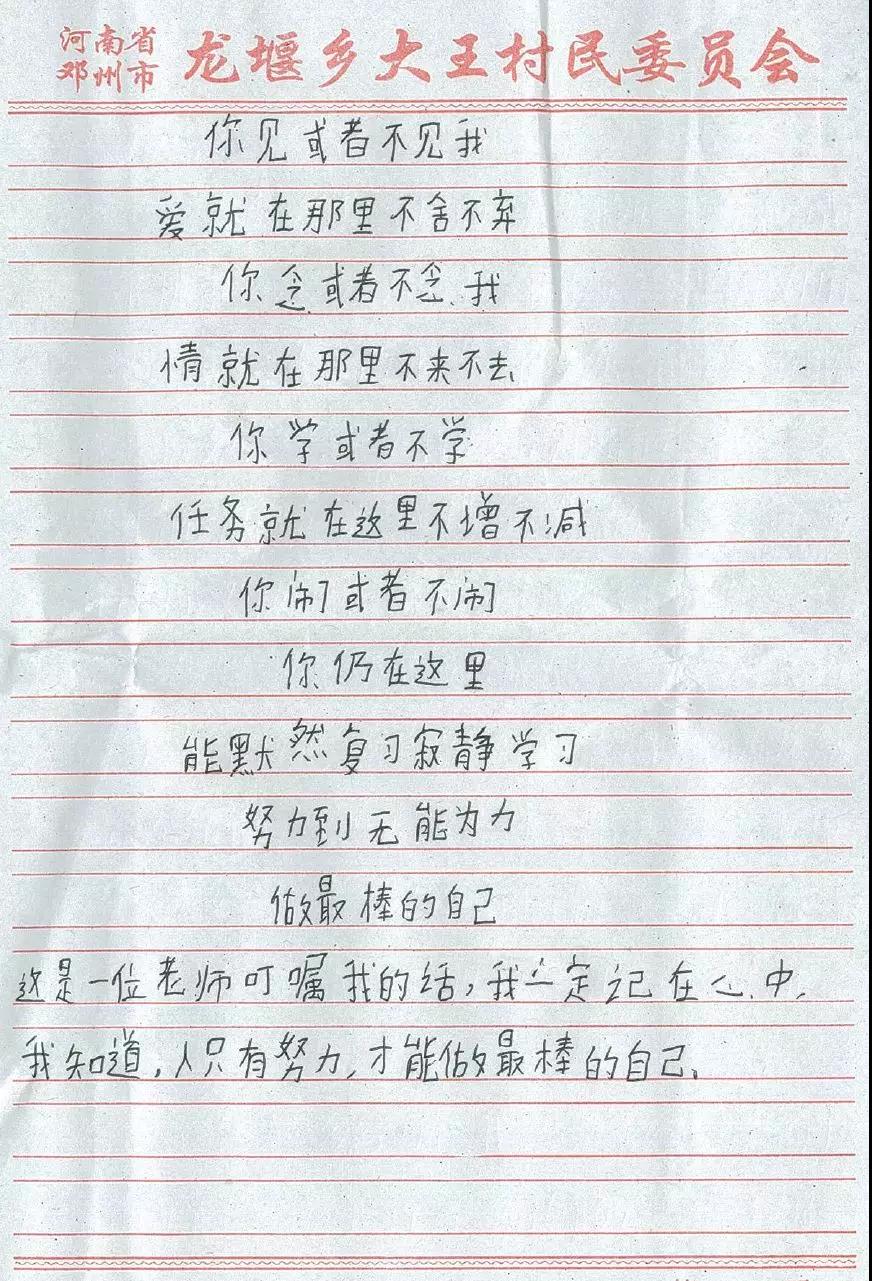 河南省
邓州市 龙堰乡大王村民委员会
你见或者不见我
爱就在那里不舍不弃
你念或者不念我
情就在那里不来不去
你学或者不学
任务就在这里不增不减
你闹或者不闹
你仍在这里
能默然复习寂静学习
努力到无能为力
做最棒的自己
这是一位老师叮嘱我的话,我一定记在心中,
我知道,人只有努力,才能做最棒的自己。